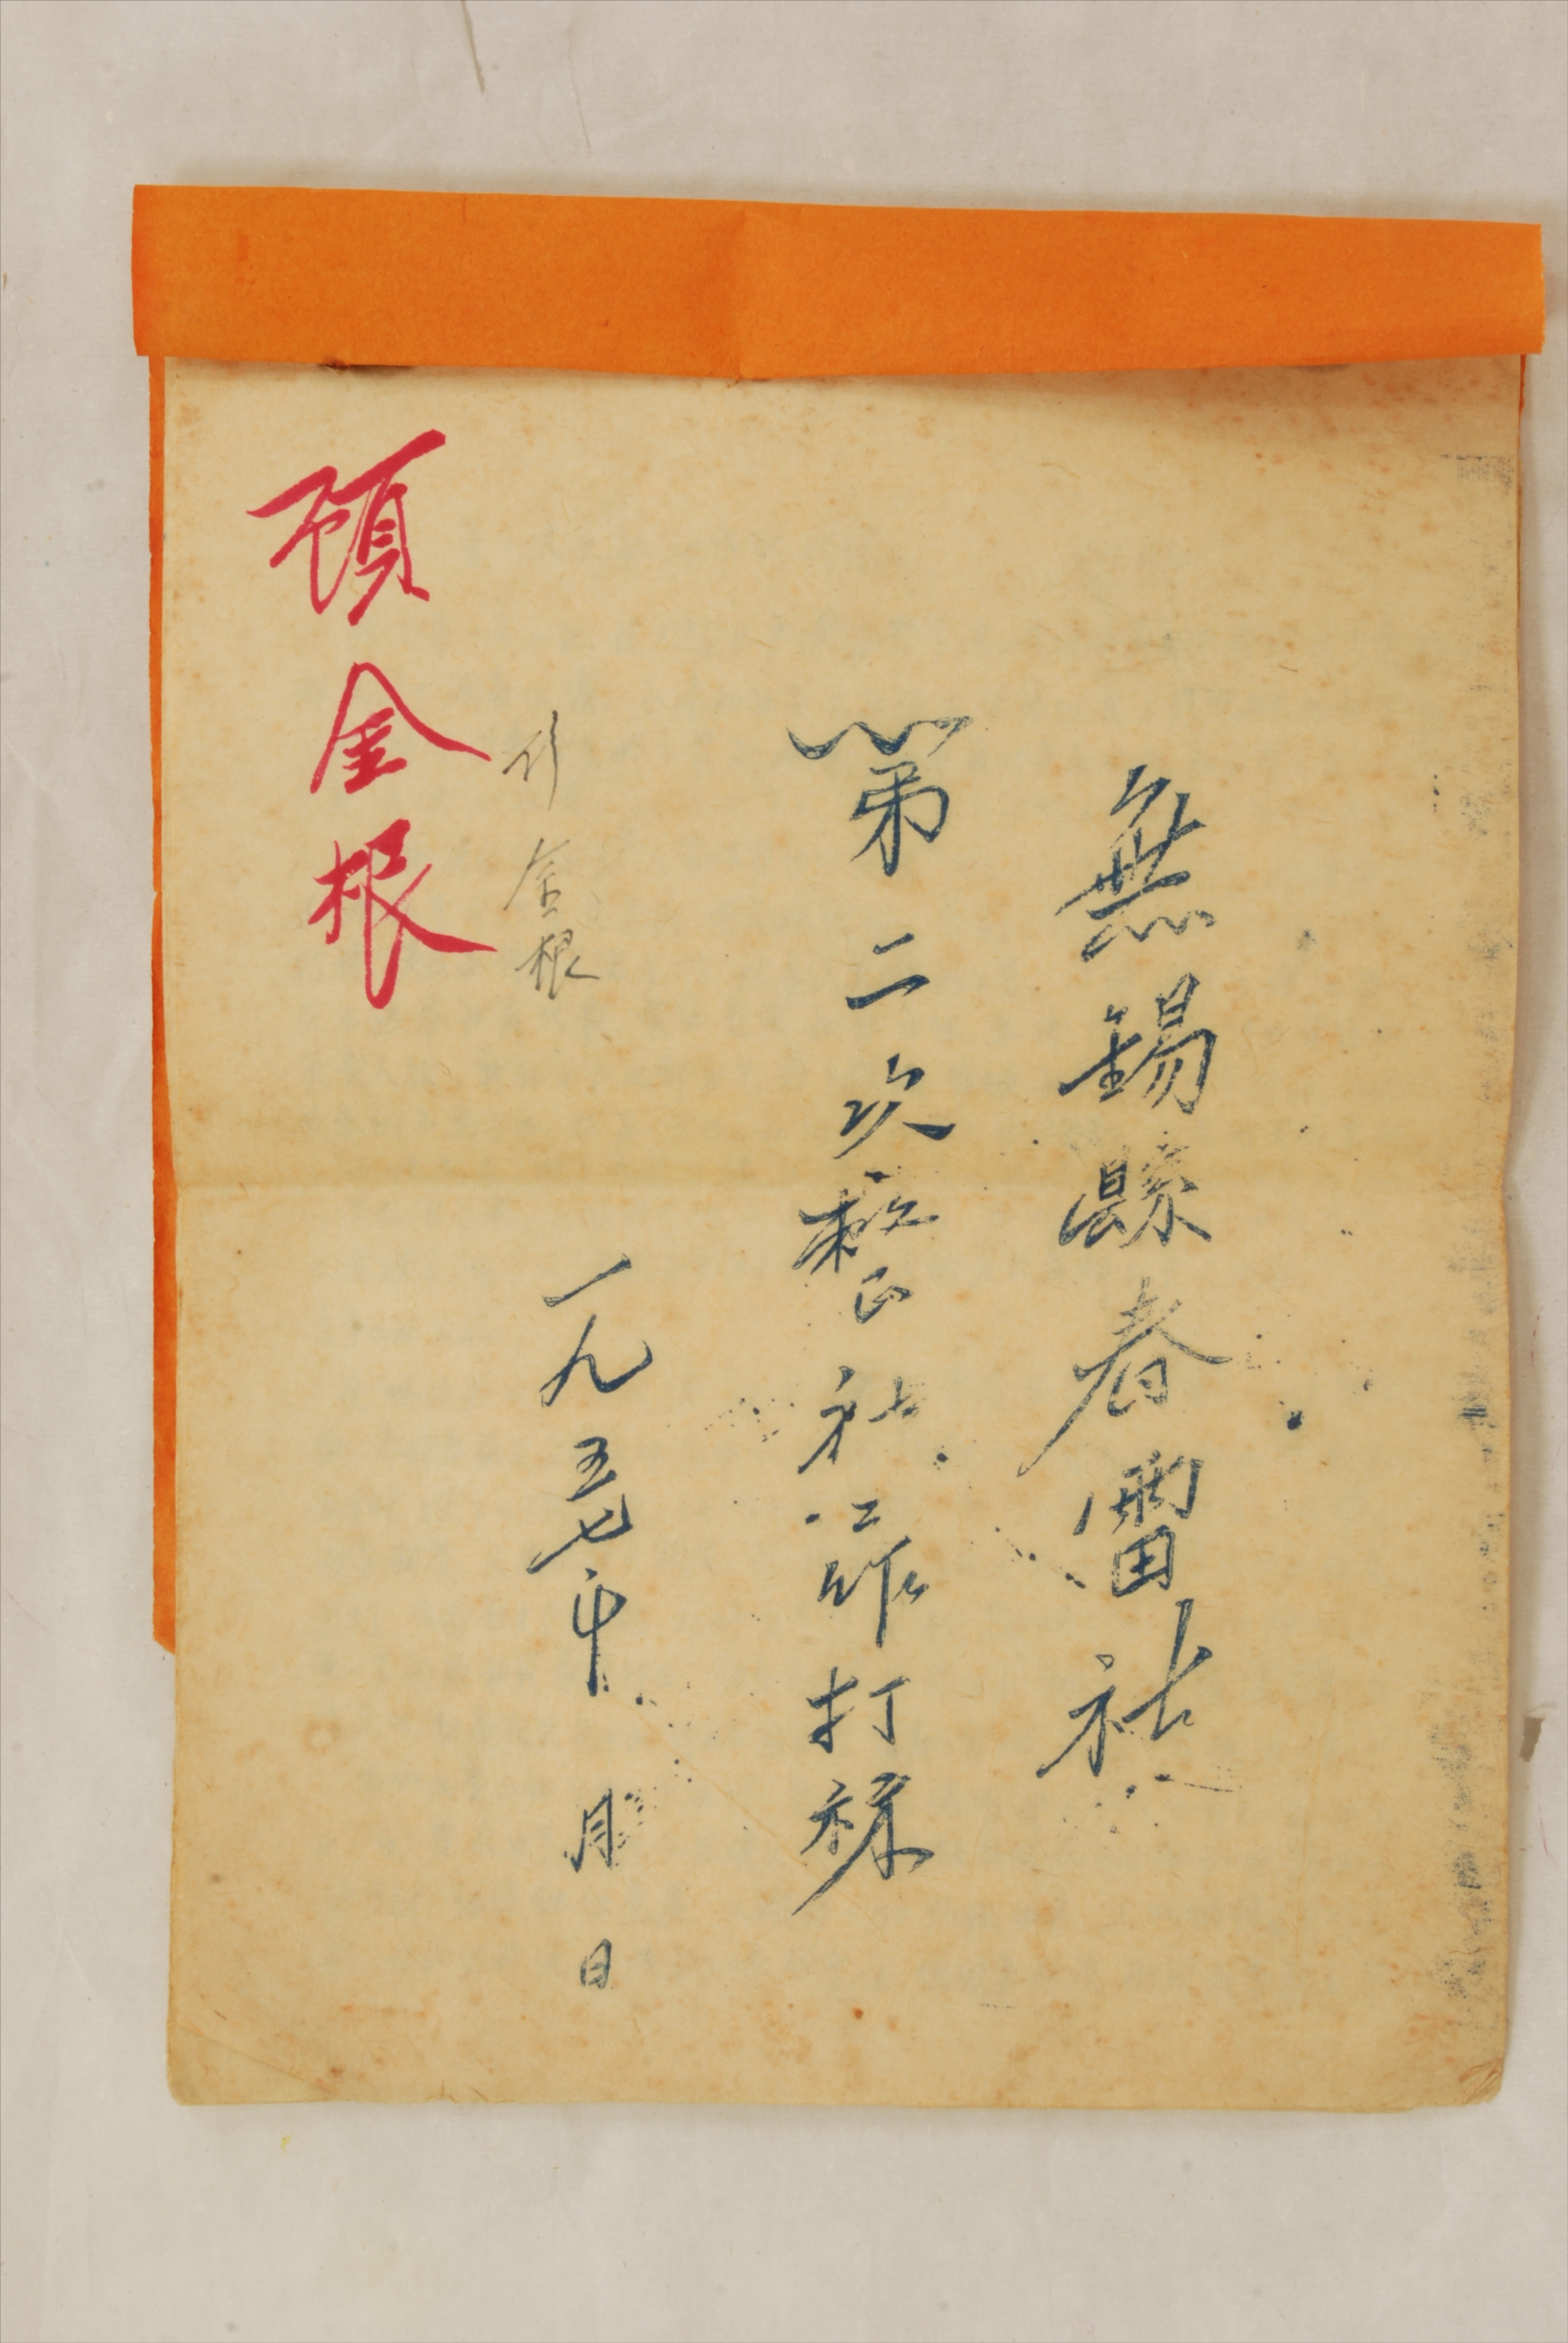 無錫縣春雷社
第二次整社工作打祘
一九五七年 月 日
金根
金根